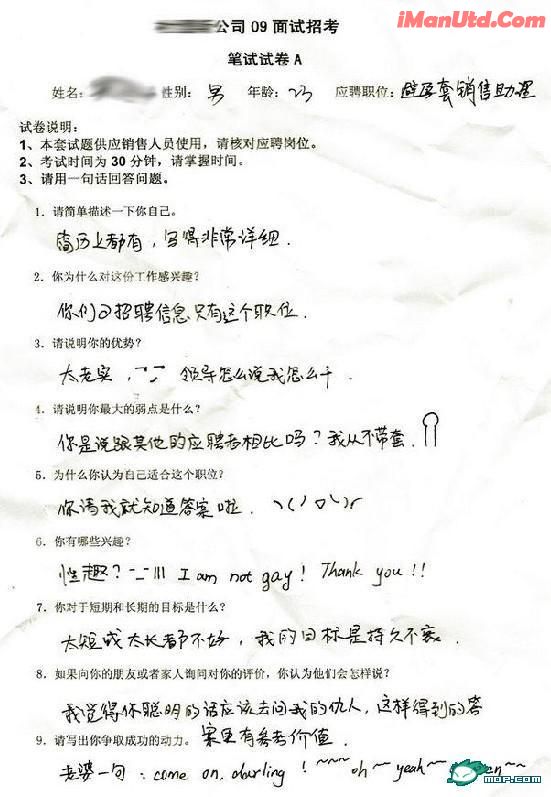 iManUtd.Com
公司 09 面试招考
笔试试卷 A
姓名： 性别：男 年龄：25 应聘职位：避孕套销售助理
试卷说明：
1、本套试题供应销售人员使用，请核对应聘岗位。
2、考试时间为 30 分钟，请掌握时间。
3、请用一句话回答问题。
1. 请简单描述一下你自己。
简历上都有，写得非常详细．
2. 你为什么对这份工作感兴趣？
你们的招聘信息只有这个职位．
3. 请说明你的优势？
太老实， 领导怎么说我怎么干．
4. 请说明你最大的弱点是什么？
你是说跟其他的应聘者相比吗？我从不带套．
5. 为什么你认为自己适合这个职位？
你请我就知道答案啦．
6. 你有哪些兴趣？
性趣？ I am not gay！ Thank you！！
7. 你对于短期和长期的目标是什么？
太短或太长都不好，我的目标是持久不衰．
8. 如果向你的朋友或者家人询问对你的评价，你认为他们会怎样说？
我觉得你聪明的话应该去问我的仇人，这样得到的答
案更有参考价值．
9. 请写出你争取成功的动力。
老婆一句：come on, darling！~~~ oh~ yeah~
MOP.COM